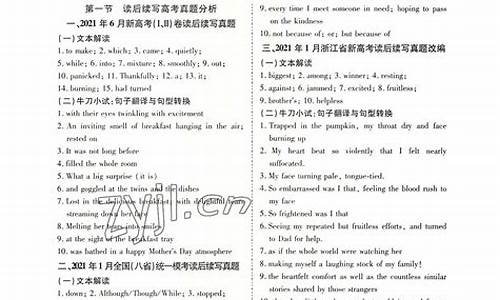 第一节 读后续写高考真题分析
一、2021 年 6 月新高考(Ⅰ、Ⅱ)卷读后续写真题
(一)文本解读
1. to make; 2. which; 3. came; 4. quietly;
5. while; 6. into; 7. mixture; 8. smoothly; 9. out;
10. panicked; 11. Thankfully; 12. a; 13. it;
14. burning; 15. had turned
(二)牛刀小试:句子翻译与句型转换
1. with their eyes twinkling with excitement
2. An inviting smell of breakfast hanging in the air;
rested on
3. It was not long before
4. filled the whole room
5. What a big surprise (it is)
6. and goggled at the twins and the dishes
7. Lost in the delicious breakfast, with delightful tears
streaming down her face
8. Melting her tears into smiles
9. at the sight of the breakfast tray
10. was bathed in a happy Mother's Day atmosphere
二、2021 年 1 月全国(八省)统一模考读后续写真题
(一)文本解读
1. down; 2. Although/Though/While; 3. stopped;
9. every time I meet someone in need; hoping to pass
on the kindness
10. not because of; or; but because of
三、2021 年 1 月浙江省新高考读后续写真题改编
(一)文本解读
1. biggest; 2. among; 3. winner; 4. resting;
5. against; 6. jammed; 7. excited; 8. fruitless;
9. brother's; 10. helpless
(二)牛刀小试:句子翻译与句型转换
1. Trapped in the pumpkin, my throat dry and face
burning up
2. My heart beat so violently that I felt nearly
suffocated.
3. My face turning pale, tongue-tied.
4. So embarrassed was I that, feeling the blood rush to
my face
5. So frightened was I that
6. Seeing my repeated but fruitless efforts, and turned
to Dad for help.
7. as if the whole world were watching her
8. making myself a laughing stock of my family!
9. the heartfelt comfort as well as the countless similar
stories shared by those strangers